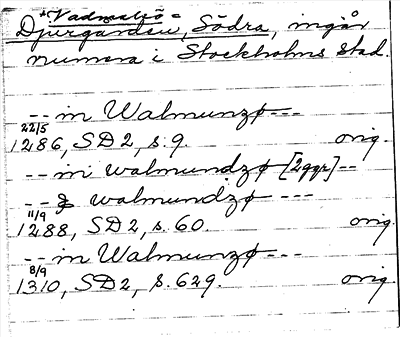 *Vadmalsö =
Djurgården, Södra, ingår
numera i Stockholms stad.
-- in Walmunzø ---
22/5
1286, SD2, s. 9. orig.
-- in walmundzø [2ggr] --
-- walmundzø ---
11/9
1288, SD2, s. 60. orig.
-- in Walmunzø ---
8/9
1310, SD2, s. 629. orig.